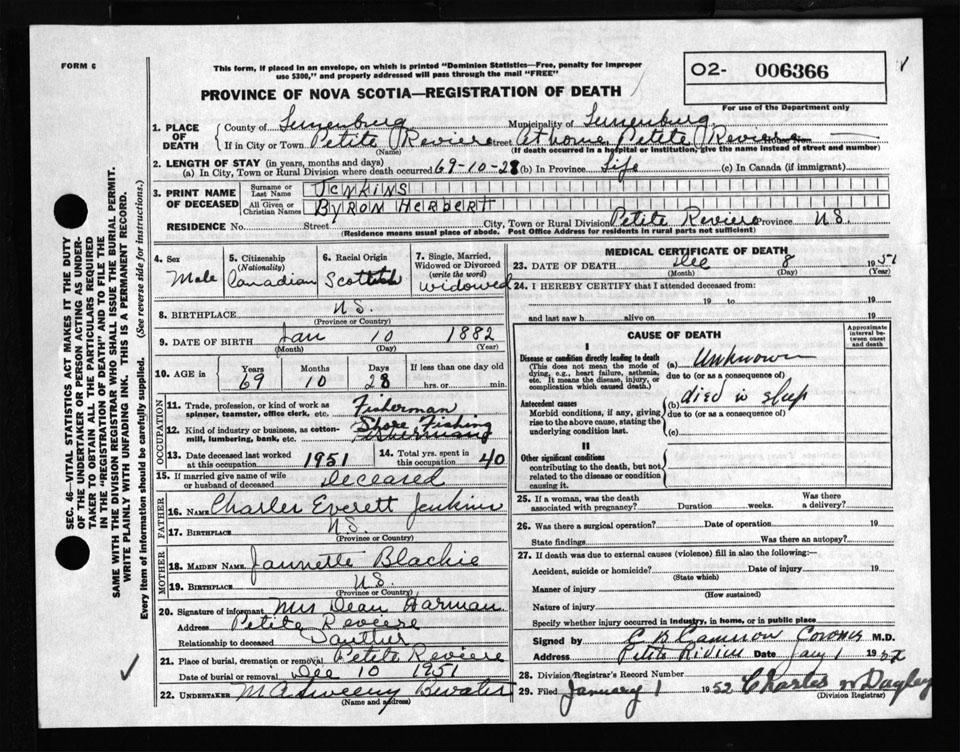 FORM 6
This form, if placed in an envelope, on which is printed "Dominion Statistics—Free, penalty for improper
use $300," and properly addressed will pass through the mail "FREE"
O2- 006366
For use of the Department only
PROVINCE OF NOVA SCOTIA—REGISTRATION OF DEATH
1. PLACE OF DEATH
County of Lunenburg Municipality of Lunenburg
If in City or Town Petite Reviere Street at home Petite Reviere House No.
(Name) (If death occurred in a hospital or institution, give the name instead of street and number)
2. LENGTH OF STAY (in years, months and days)
(a) In City, Town or Rural Division where death occurred 69-10-28 (b) In Province Life (c) In Canada (if immigrant)
3. PRINT NAME OF DECEASED
Surname or Last Name JENKINS
All Given or Christian Names BYRON HERBERT
RESIDENCE No. Street City, Town or Rural Division Petite Reviere Province N.S.
(Residence means usual place of abode. Post Office Address for residents in rural parts not sufficient)
4. Sex Male
5. Citizenship (Nationality) Canadian
6. Racial Origin Scottish
7. Single, Married, Widowed or Divorced (write the word) widowed
8. BIRTHPLACE N.S.
(Province or Country)
9. DATE OF BIRTH Jan 10 1882
(Month) (Day) (Year)
10. AGE in Years 69 Months 10 Days 28 If less than one day old hrs. or min.
OCCUPATION
11. Trade, profession, or kind of work as spinner, teamster, office clerk, etc. Fisherman
12. Kind of industry or business, as cotton-mill, lumbering, bank, etc. Shore Fishing
13. Date deceased last worked at this occupation 1951
14. Total yrs. spent in this occupation 40
15. If married give name of wife or husband of deceased Deceased
FATHER
16. NAME Charles Everett Jenkins
17. BIRTHPLACE N.S.
(Province or Country)
MOTHER
18. MAIDEN NAME Jannette Blackie
19. BIRTHPLACE N.S.
(Province or Country)
20. Signature of informant Mrs Dean Harman
Address Petite Reviere
Relationship to deceased Daughter
21. Place of burial, cremation or removal Petite Reviere
Date of burial or removal Dec 10 1951
22. UNDERTAKER M A Sweeny Bwater
(Name and address)
MEDICAL CERTIFICATE OF DEATH
23. DATE OF DEATH Dec 8 1951
(Month) (Day) (Year)
24. I HEREBY CERTIFY that I attended deceased from:
19 to 19
and last saw h alive on 19
CAUSE OF DEATH
Approximate interval between onset and death
I
Disease or condition directly leading to death
(This does not mean the mode of dying, e.g., heart failure, asthenia, etc. It means the disease, injury, or complication which caused death.)
(a) Unknown
due to (or as a consequence of)
Antecedent causes
Morbid conditions, if any, giving rise to the above cause, stating the underlying condition last.
(b) died in sleep
due to (or as a consequence of)
(c)
II
Other significant conditions
contributing to the death, but not related to the disease or condition causing it.
25. If a woman, was the death associated with pregnancy? Duration weeks. Was there a delivery?
26. Was there a surgical operation? Date of operation 19
State findings Was there an autopsy?
27. If death was due to external causes (violence) fill in also the following:—
Accident, suicide or homicide? Date of injury 19
(State which)
Manner of injury
(How sustained)
Nature of injury
Specify whether injury occurred in industry, in home, or in public place
Signed by C B Cameron Coroner M.D.
Address Petite Riviere Date Jany 1 1952
28. Division Registrar's Record Number
29. Filed January 1 1952 Charles W Dagley
(Division Registrar)
SEC. 46—VITAL STATISTICS ACT MAKES IT THE DUTY
OF THE UNDERTAKER OR PERSON ACTING AS UNDER-
TAKER TO OBTAIN ALL THE PARTICULARS REQUIRED
IN THE "REGISTRATION OF DEATH" AND TO FILE THE
SAME WITH THE DIVISION REGISTRAR WHO SHALL ISSUE THE BURIAL PERMIT.
WRITE PLAINLY WITH UNFADING INK. THIS IS A PERMANENT RECORD.
Every item of information should be carefully supplied. (See reverse side for instructions.)